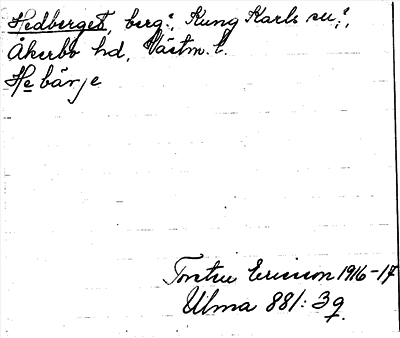 Hedberget, berg i Kung Karls sn i
Åkerbo hd, Västm. l.
He bärje
Torsten Ericsson 1916-17
Ulma 881: 3 q.